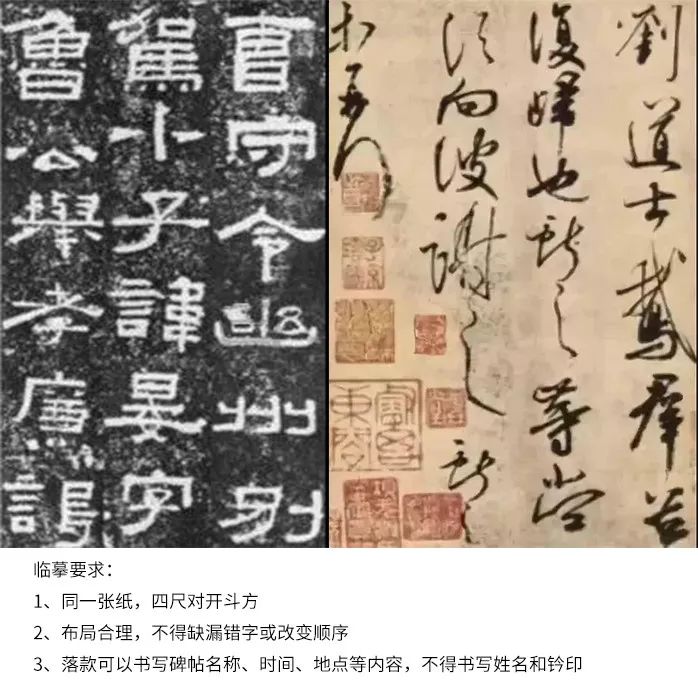 曹守令幽州別
駕小子諱晏字
魯公舉孝廉謁
劉道士鵝群並
復歸也獻之等當
須向彼謝之獻之
等再拜
睿思東閣
临摹要求：
1、同一张纸，四尺对开斗方
2、布局合理，不得缺漏错字或改变顺序
3、落款可以书写碑帖名称、时间、地点等内容，不得书写姓名和钤印